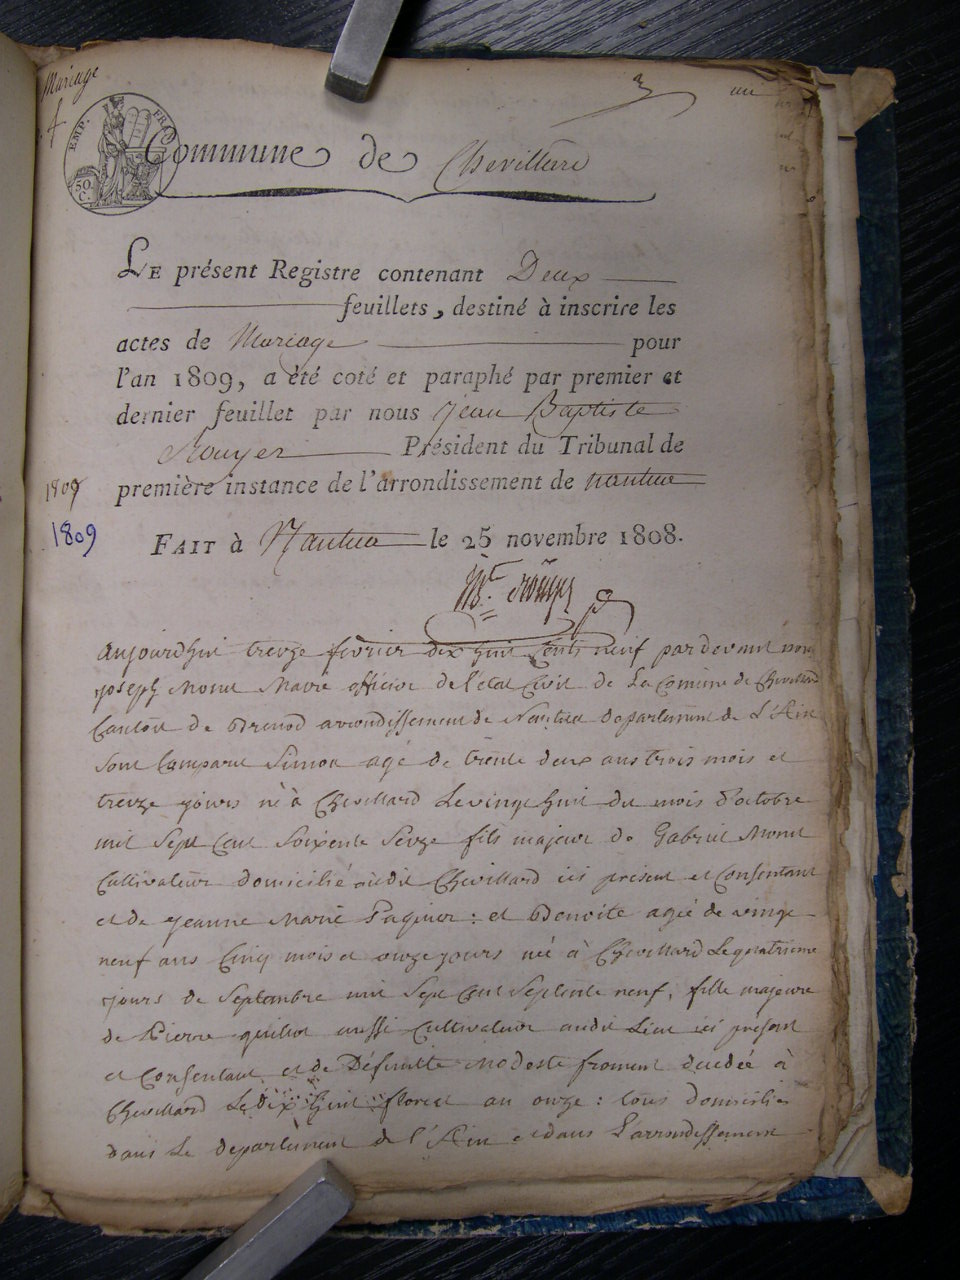 Mariage
un
EMP. FRAN
50 C.
Commune de Chevillard
LE présent Registre contenant Deux
feuillets, destiné à inscrire les
actes de Mariage pour
l'an 1809, a été coté et paraphé par premier et
dernier feuillet par nous Jean Baptiste
Rouyer Président du Tribunal de
1809 première instance de l'arrondissement de nantua
1809
FAIT à Nantua le 25 novembre 1808.
aujourdhui treuze fevrier dix huit Cents neuf par devant nous
joseph Monet Maire officier de l'état Civil de La Comune de Chevillard
Canton de Brenod arrondissement de Nantua departement de L'Ain
sont Comparu Simon agé de trente deux ans trois mois et
treuze jours né à Chevillard Le vingt huit du mois d'octobre
mil Sept Cent Soixente Seuze fils majeur de Gabriel Monet
Cultivateur domicilié audit Chevillard ici présent et Consentant
et de Jeanne Marie : et Benoite agée de vingt
neuf ans Cinq mois et onze jours née à Chevillard Le quatrieme
jours de Septembre mil Sept Cent Septente neuf, fille majeure
de Pierre quillot aussi Cultivateur audit Lieu ici présent
et Consentant et de Défunte Modeste froment décédée à
Chevillard Le dix huit floreal an onze : tous domiciliés
dans Le departement de l'Ain et dans L'arrondissement